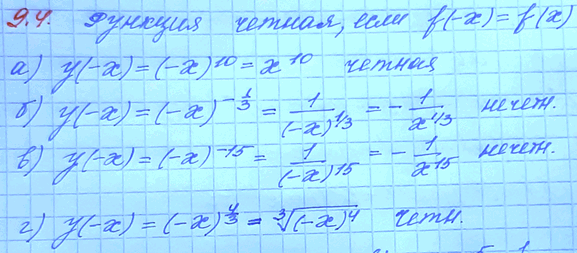 9.4. Функция четная, если f(-x) = f(x)
а) y(-x) = (-x)^10 = x^10 четная
б) y(-x) = (-x)^(-1/3) = 1/(-x)^(1/3) = - 1/x^(1/3) нечет.
в) y(-x) = (-x)^(-15) = 1/(-x)^15 = - 1/x^15 нечет.
г) y(-x) = (-x)^(4/3) = ∛((-x)^4) четн.